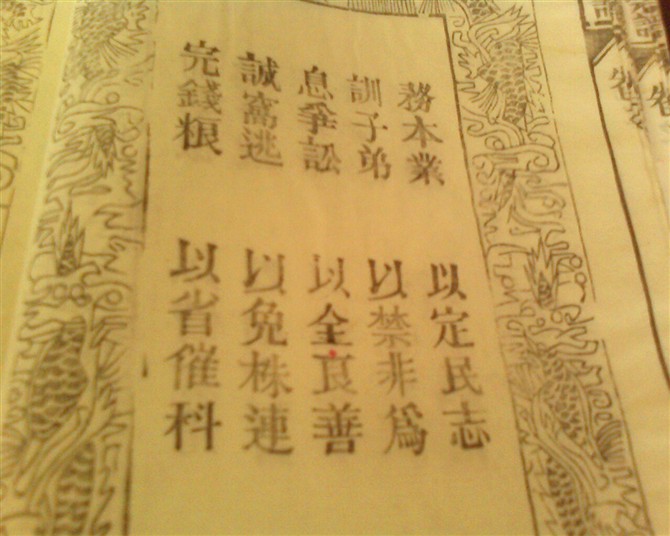 務本業 以定民志
訓子弟 以禁非爲
息爭訟 以全良善
誠窩逃 以免株連
完錢粮 以省催科